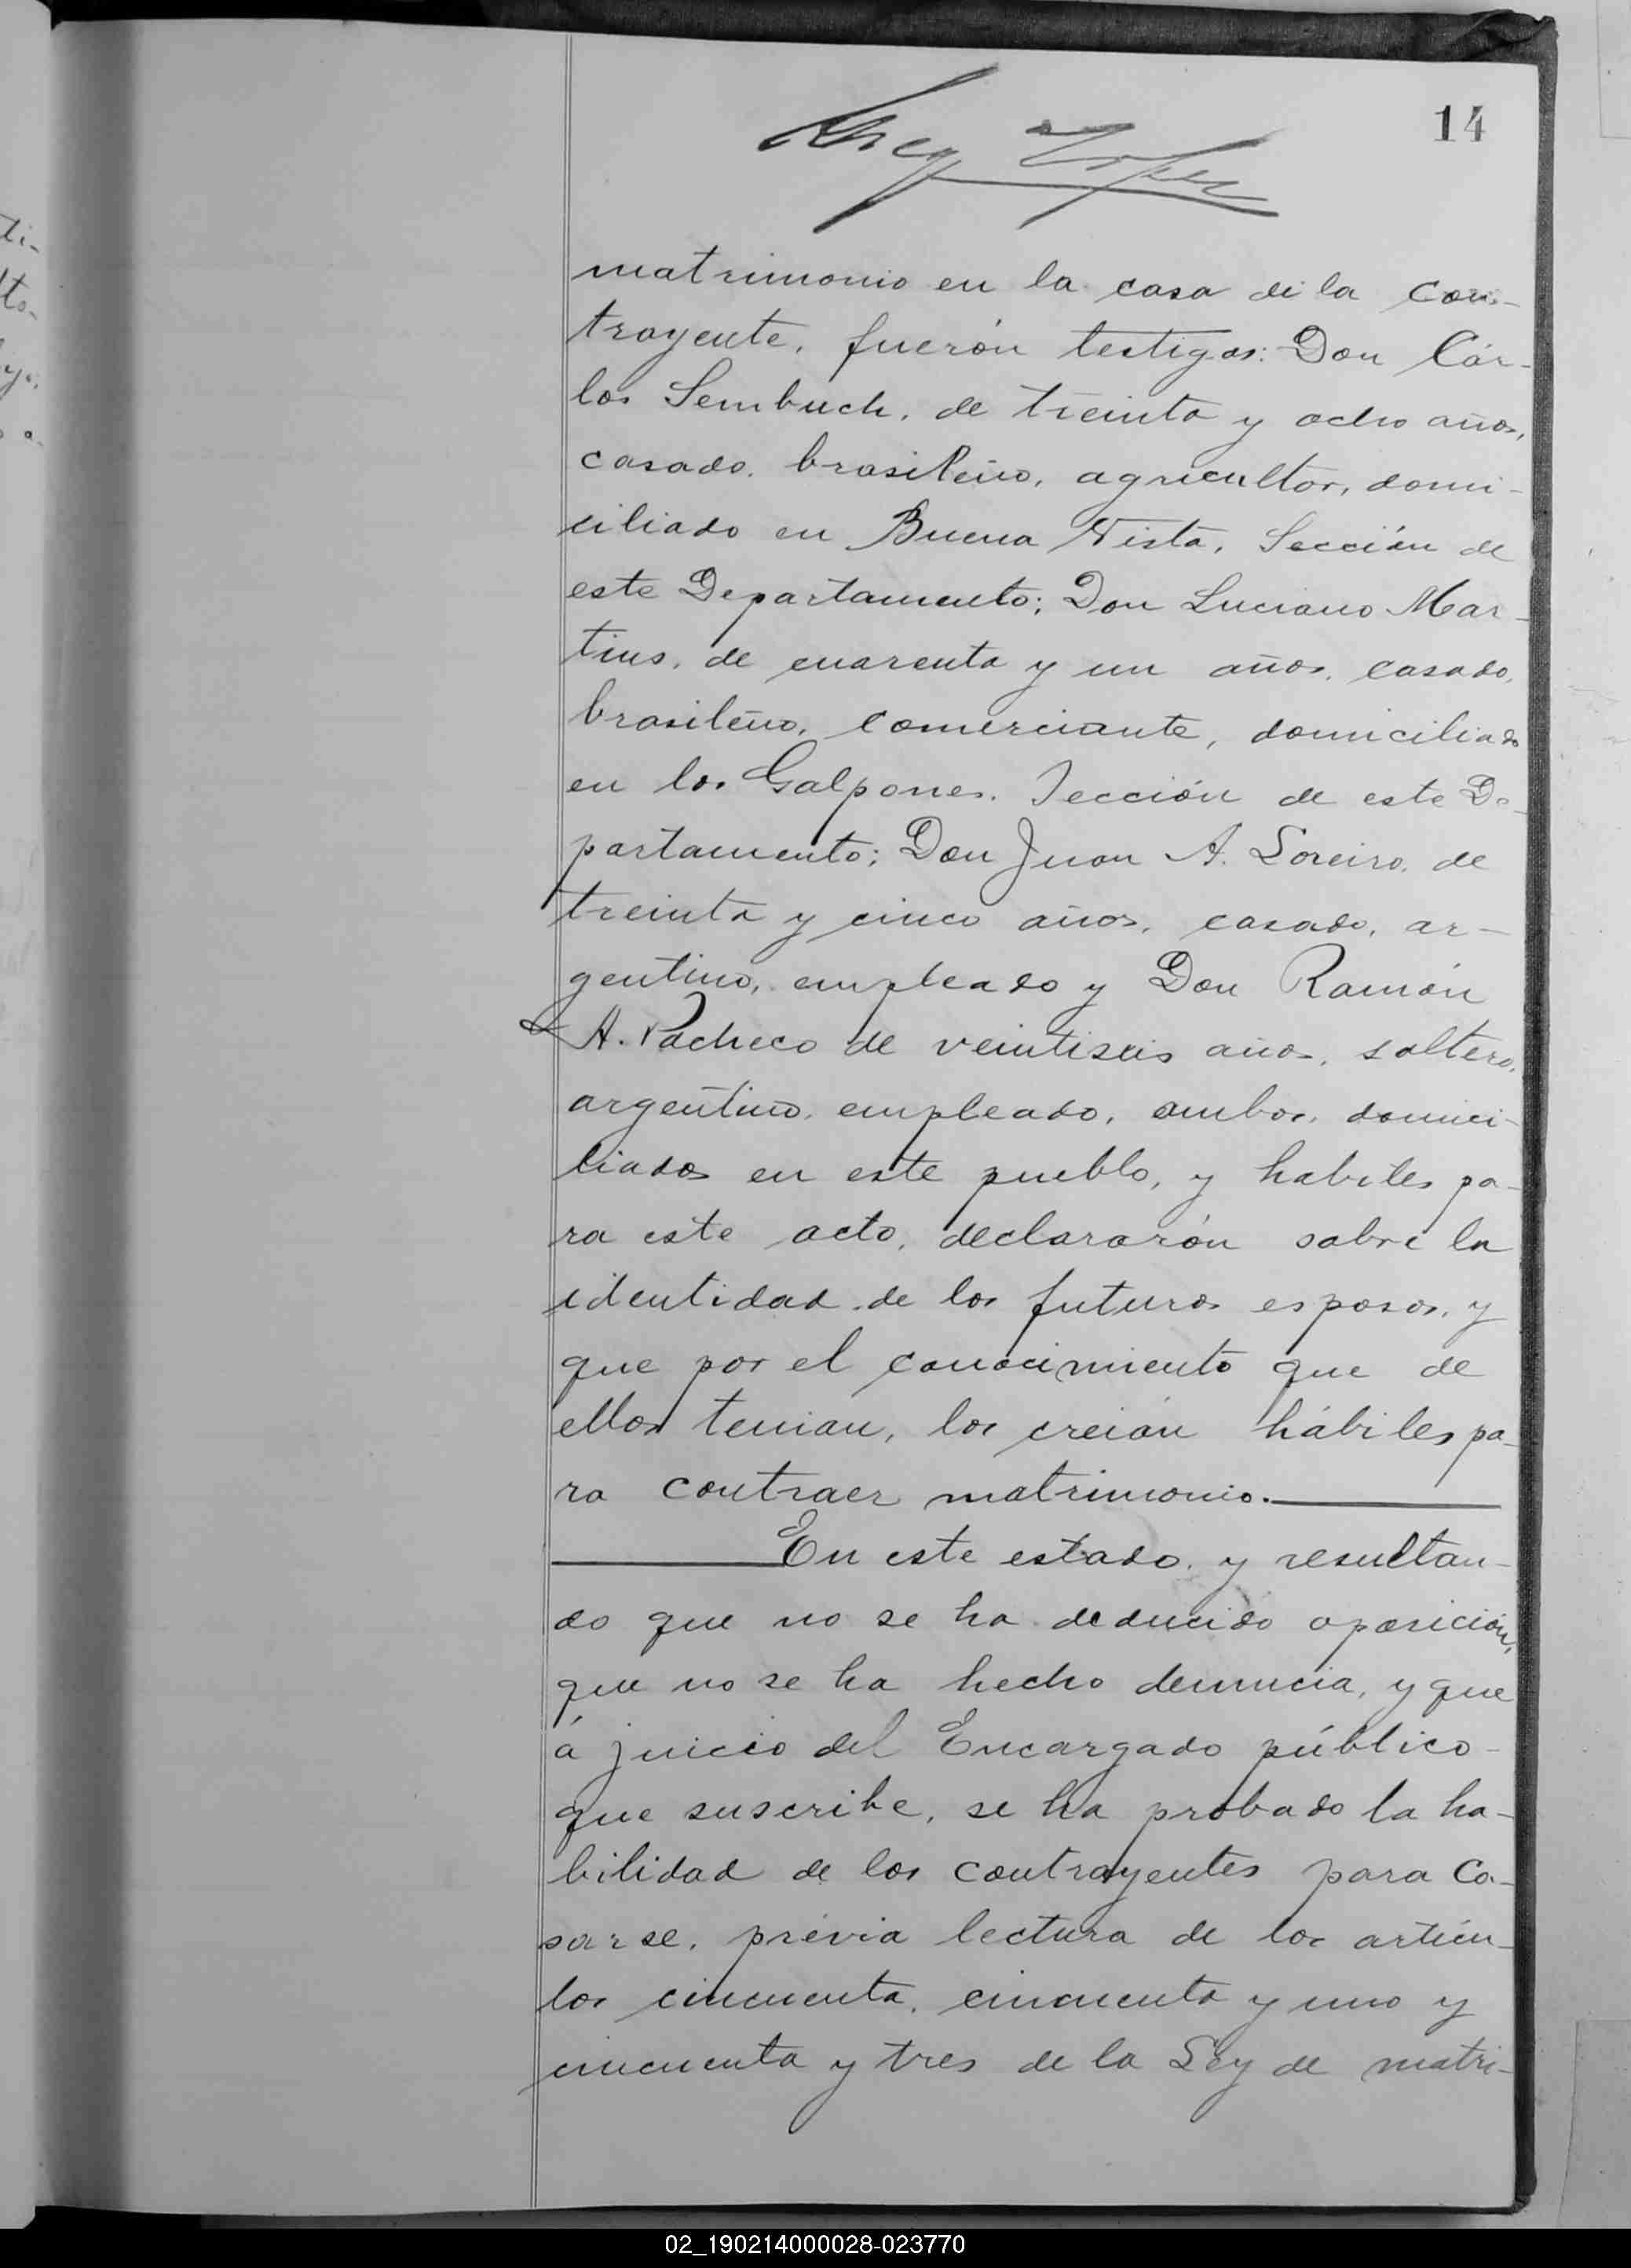 14
matrimonio en la casa de la con-
trayente, fuerón testigos: Don Cár-
los Sembuch, de treinta y ocho años,
casado, brasileño, agricultor, domi-
ciliado en Buena Vista, Sección de
este Departamento; Don Luciano Mar-
tins, de cuarenta y un años, casado,
brasileño, comerciante, domiciliado
en los Galpones, Sección de este De-
partamento; Don Juan A. Loreiro, de
treinta y cinco años, casado, ar-
gentino, empleado y Don Ramón
A. Pacheco de veintiseis años, soltero,
argentino, empleado, ambos, domici-
liados en este pueblo, y habiles pa-
ra este acto, declararón sobre la
identidad de los futuros esposos, y
que por el conocimiento que de
ellos tenian, los creián hábiles pa-
ra contraer matrimonio.
En este estado, y resultan-
do que no se ha deducido oposición,
que no se ha hecho denuncia, y que
á juicio del Encargado público
que suscribe, se ha probado la ha-
bilidad de los contrayentes para ca-
sarse, prévia lectura de los artícu-
los cincuenta, cincuenta y uno y
cincuenta y tres de la Ley de matri-
02_190214000028-023770